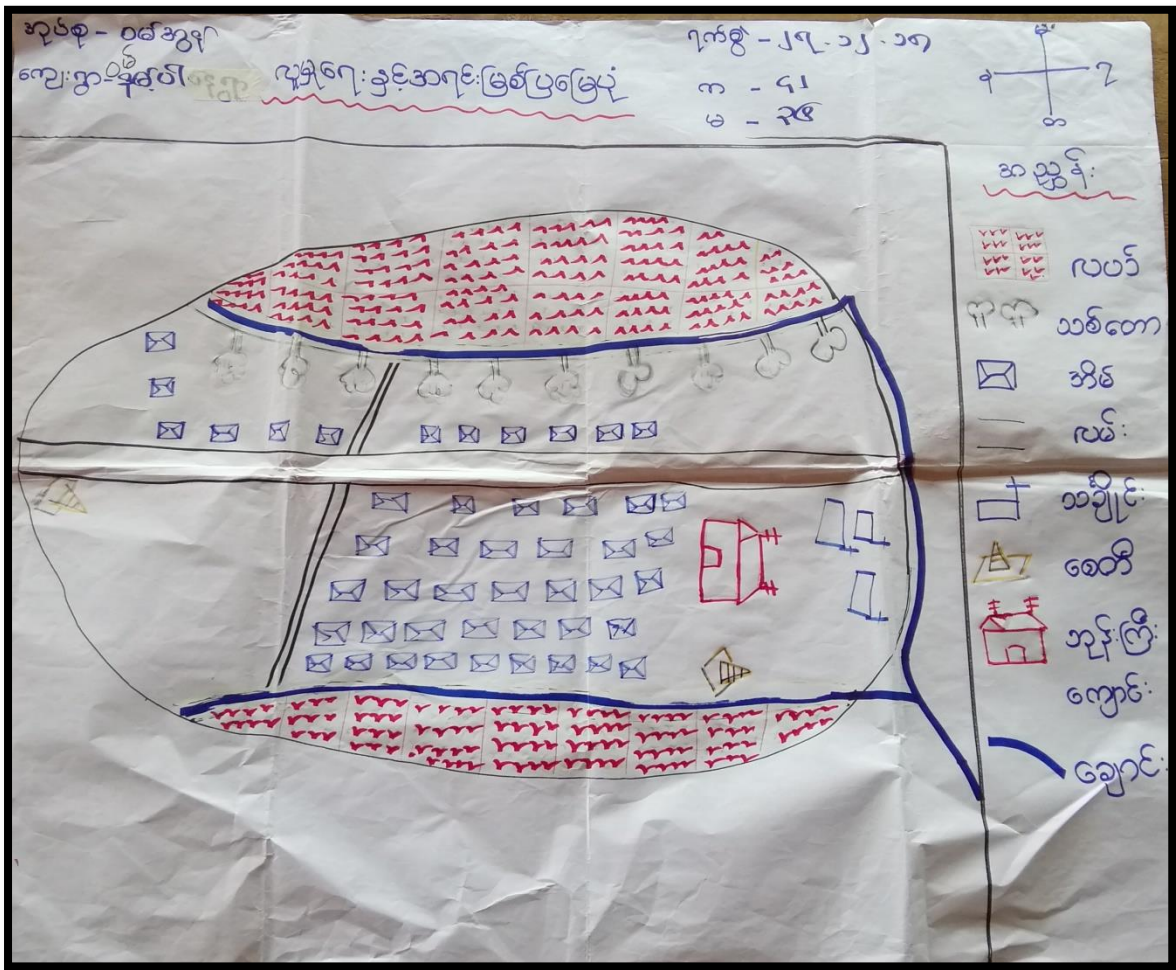 အုပ်စု - ဝမ်အွန်
ကျေးရွာ -
လူမှုရေးနှင့်အရင်းမြစ်ပြမြေပုံ
ရက်စွဲ - ၂၇.၁၂.၁၈
က - ၄၂
မ - ၃၅
မ
န
တ
အညွှန်း
လယ်
သစ်တော
အိမ်
လမ်း
သချိုင်း
စေတီ
ဘုန်းကြီး
ကျောင်း
ချောင်း